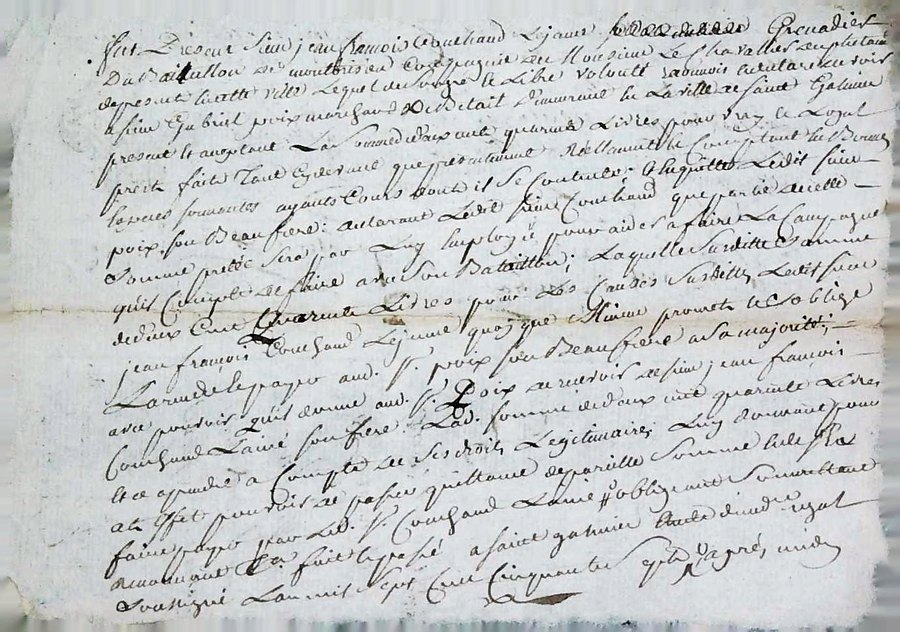 fut Present Sieur jean françois Couchaud Lejeune Grenadier
Du Bataillon De montbrison Compagnie de Monsieur Le Chevallier
depresent en cette ville Lequel de Son gré et Libre volonté
a sieur Gabriel poix marchand De La ville de Saint Galmier
present et aceptant La Somme de deux cent quarante Livres pour vray et Loyal
prest a luy fait Tant cy devant que presentement Reellement et Comptant en Bonnes
Especes sonnantes ayants Cours dont il Se Contente Ledit sieur
poix son Beau frere; declarant Ledit sieur Couchaud que partie de cette
Somme prettée Sera par Luy Employée pour aider a faire La Campagne
qu'il Compte De faire avec Son Bataillon; Laquelle Susditte Somme
de deux Cent Quarante Livres pour Les Causes Susdittes Ledit sieur
jean françois Couchaud Lejeune quoy que Mineur promet et S'oblige
La rendre et payer aud. Sr. poix son Beau frere a Sa majorité;
avec pouvoir qu'il donne aud. Sr. Poix de recevoir de sieur jean françois
Couchaud L'ainé son frere Lad. Somme de deux cent quarante Livres
et ce a prendre a Compte de Ses droits Legitimaires Luy donnant pour
cet Effet pouvoir de passer quittance de pareille Somme
faire payer par Led. Sr. Couchaud L'ainé obligeant Soumettant
Renoncant fait et passé a Saint galmier Etude dud. regal
Soussigné L'an mil Sept Cent Cinquante Sept après midy